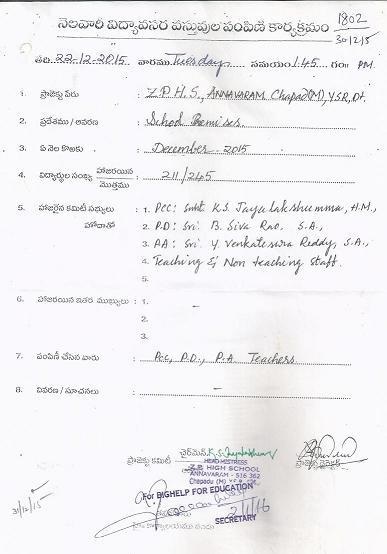 నెలవారీ విద్యావసర వస్తువుల పంపిణీ కార్యక్రమం
1802
30/12/15
తేది: 22-12-2015 వారము Tuesday సమయం 1.45 గం॥ PM
1. ప్రాజెక్టు పేరు : Z.P.H.S., ANNAVARAM, Chapad(M), YSR, Dt.
2. ప్రదేశము / ఆవరణ : School Premises.
3. ఏ నెల కొఱకు : December - 2015
4. విద్యార్థుల సంఖ్య హాజరయిన / మొత్తము : 211/245
5. హాజరైన కమిటీ సభ్యులు : 1. PCC: Smt. K.S. Jayalakshumma, H.M.,
హోదాతో 2. P.D: Sri. B. Siva Rao, S.A.,
3. AA: Sri. Y. Venkateswara Reddy, S.A.,
4. Teaching & Non teaching staff.
5.
6. హాజరయిన ఇతర ముఖ్యులు : 1. -
2.
3.
7. పంపిణీ చేసిన వారు : Pcc, P.D., P.A. Teachers
8. వివరణ / సూచనలు : -
ప్రాజెక్టు కమిటీ చైర్‌మెన్ ప్రాజెక్టు డైరెక్టర్
HEAD MISTRESS
Z.P. HIGH SCHOOL
ANNAVARAM - 516 362
Chapadu (M)
For BIGHELP FOR EDUCATION
31/12/15
2/1/16
SECRETARY